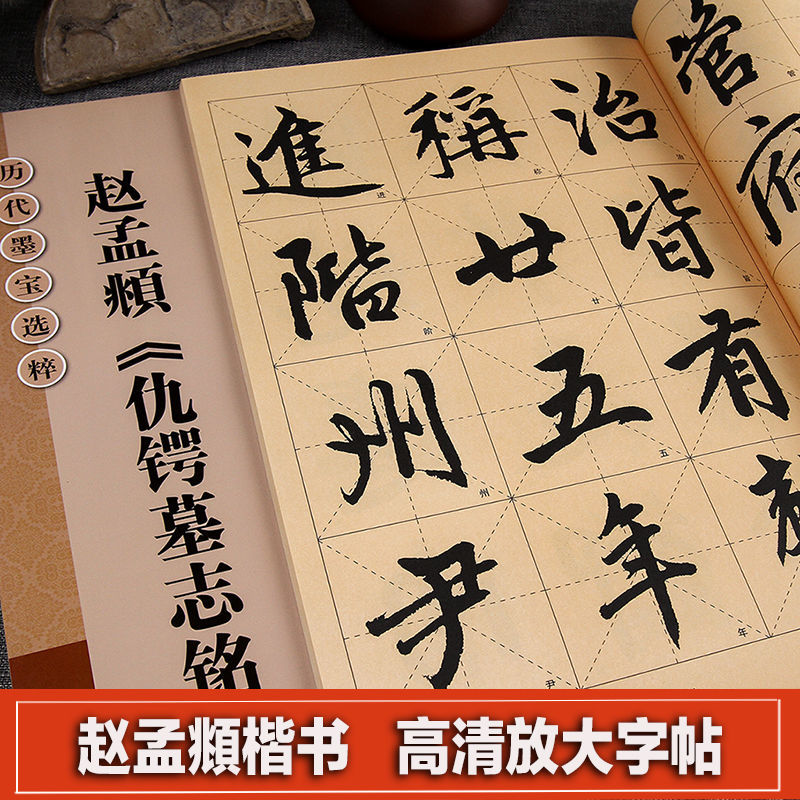 历代墨宝选粹
赵孟頫《仇锷墓志铭
管府
管
治皆有
治
皆
稱廿五年
称
廿
五
年
進階州尹
进
阶
州
尹
赵孟頫楷书 高清放大字帖